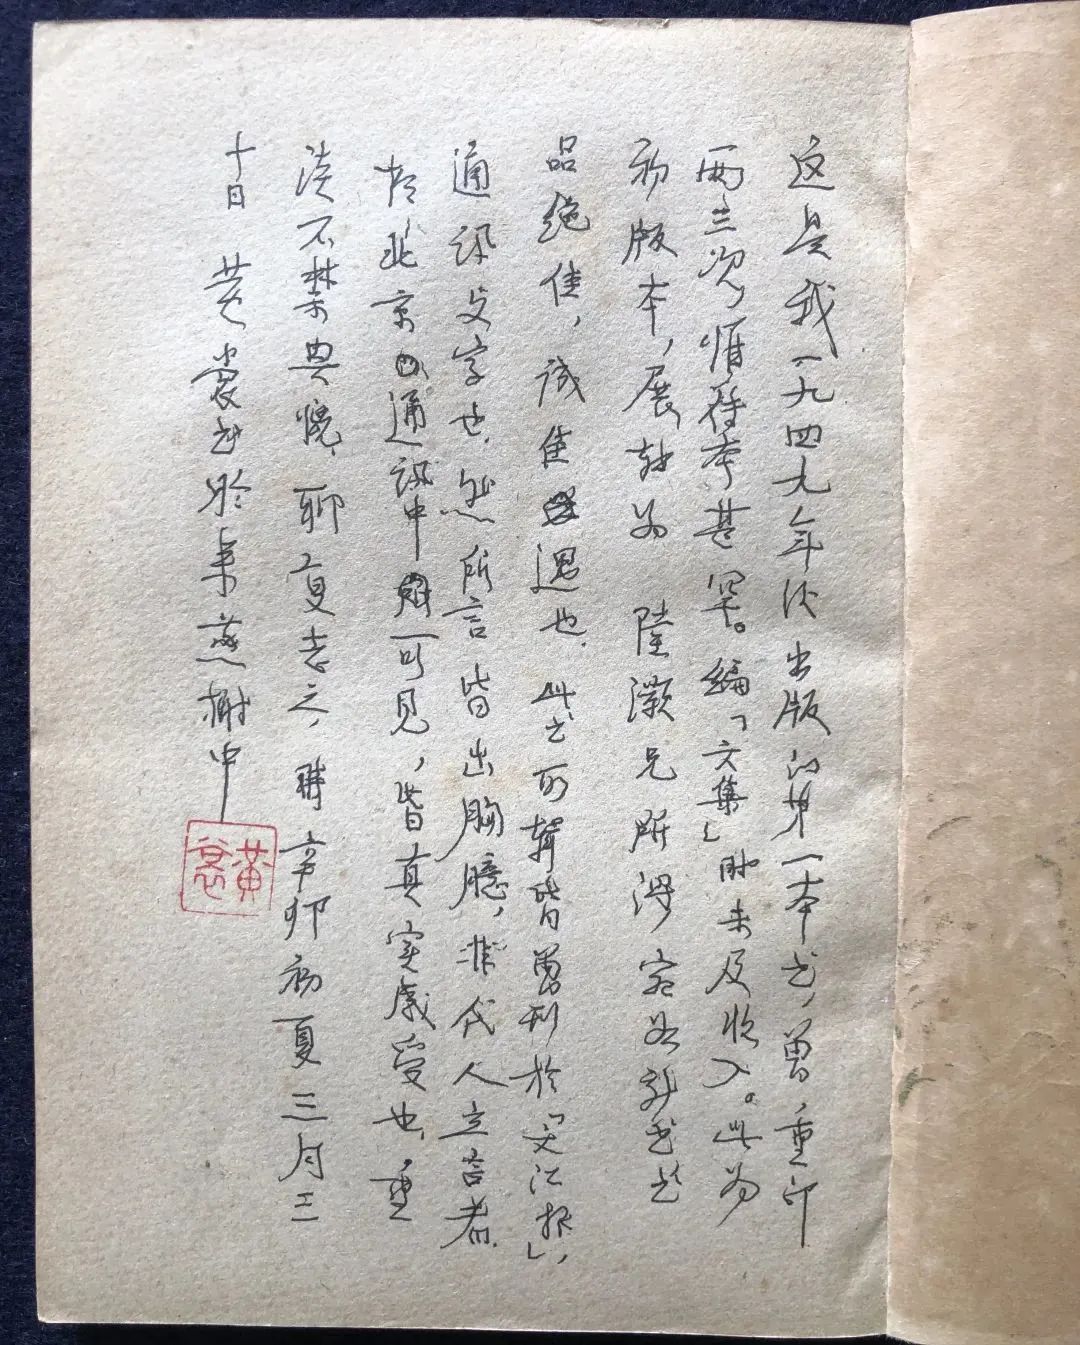 这是我一九四九年后出版的第一本书，曾重印
两三次，惟存本甚罕。编「文集」时未及收入。此为
初版本，展转为 陆灏兄所得，寄至新书
品绝佳，诚佳遇也。此书所辑皆曾刊於「文汇报」，
通讯文字也。然所言皆出胸臆，非代人立言者。
於北京的通讯中可见，皆真实感受也。重
读不禁典慨，聊复志之，时辛卯初夏三月三
十日 黄裳书於来燕榭中
黄裳